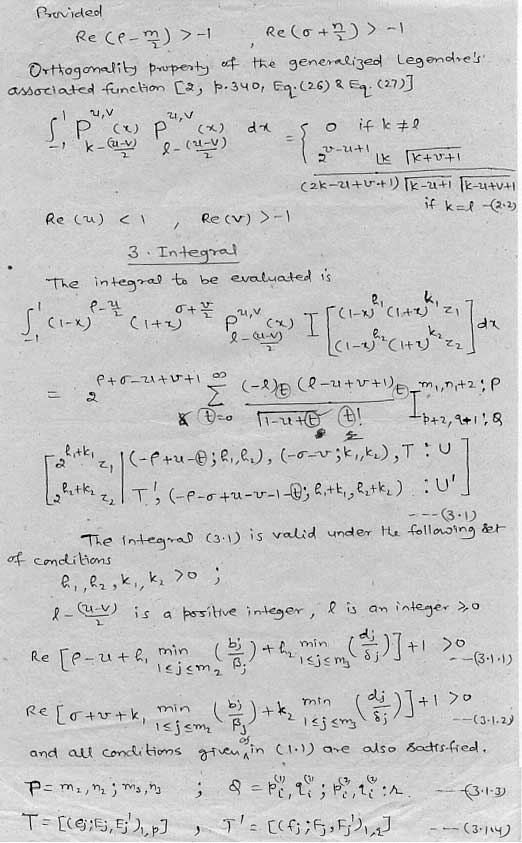 Provided
Re (ρ - m/2) > -1 , Re (σ + n/2) > -1
Orthogonality property of the generalized Legendre's
associated function [2, p.340, Eq.(26) & Eq.(27)]
∫_{-1}^{1} P^{u,v}_{k-(u-v)/2} (x) P^{u,v}_{l-(u-v)/2} (x) dx = { 0 if k ≠ l
2^{v-u+1} ⌊k Γk+v+1 / (2k-u+v+1) Γk-u+1 Γk-u+v+1
if k=l -(2.2)
Re (u) < 1 , Re (v) > -1
3. Integral
The integral to be evaluated is
∫_{-1}^{1} (1-x)^{ρ-u/2} (1+x)^{σ+v/2} P^{u,v}_{l-(u-v)/2} (x) I [(1-x)^{h₁} (1+x)^{k₁} z₁
(1-x)^{h₂} (1+x)^{k₂} z₂] dx
= 2^{ρ+σ-u+v+1} Σ_{t=0}^{∞} (-l)_t (l-u+v+1)_t / Γ1-u+t t! I^{m₁,n₁+2; P}_{p+2,q+1; Q}
[2^{h₁+k₁} z₁ | (-ρ+u-t; h₁,h₂), (-σ-v; k₁,k₂), T : U
2^{h₂+k₂} z₂ | T', (-ρ-σ+u-v-1-t; h₁+k₁, h₂+k₂) : U']
---(3.1)
The integral (3.1) is valid under the following set
of conditions
h₁, h₂, k₁, k₂ > 0 ;
l - (u-v)/2 is a positive integer, l is an integer ≥ 0
Re [ρ-u+h₁ min_{1≤j≤m₂} (bj/βj) + h₂ min_{1≤j≤m₃} (dj/δj)] + 1 > 0 ---(3.1.1)
Re [σ+v+k₁ min_{1≤j≤m₂} (bj/βj) + k₂ min_{1≤j≤m₃} (dj/δj)] + 1 > 0 ---(3.1.2)
and all conditions given in (1.1) are also satisfied.
P = m₂,n₂ ; m₃,n₃ ; Q = p_i^{(1)}, q_i^{(1)} ; p_i^{(2)}, q_i^{(2)} : r. ---(3.1.3)
T = [(ej; Ej, Ej')_{1,p}] , T' = [(fj; Fj, Fj')_{1,q}] ---(3.1.4)